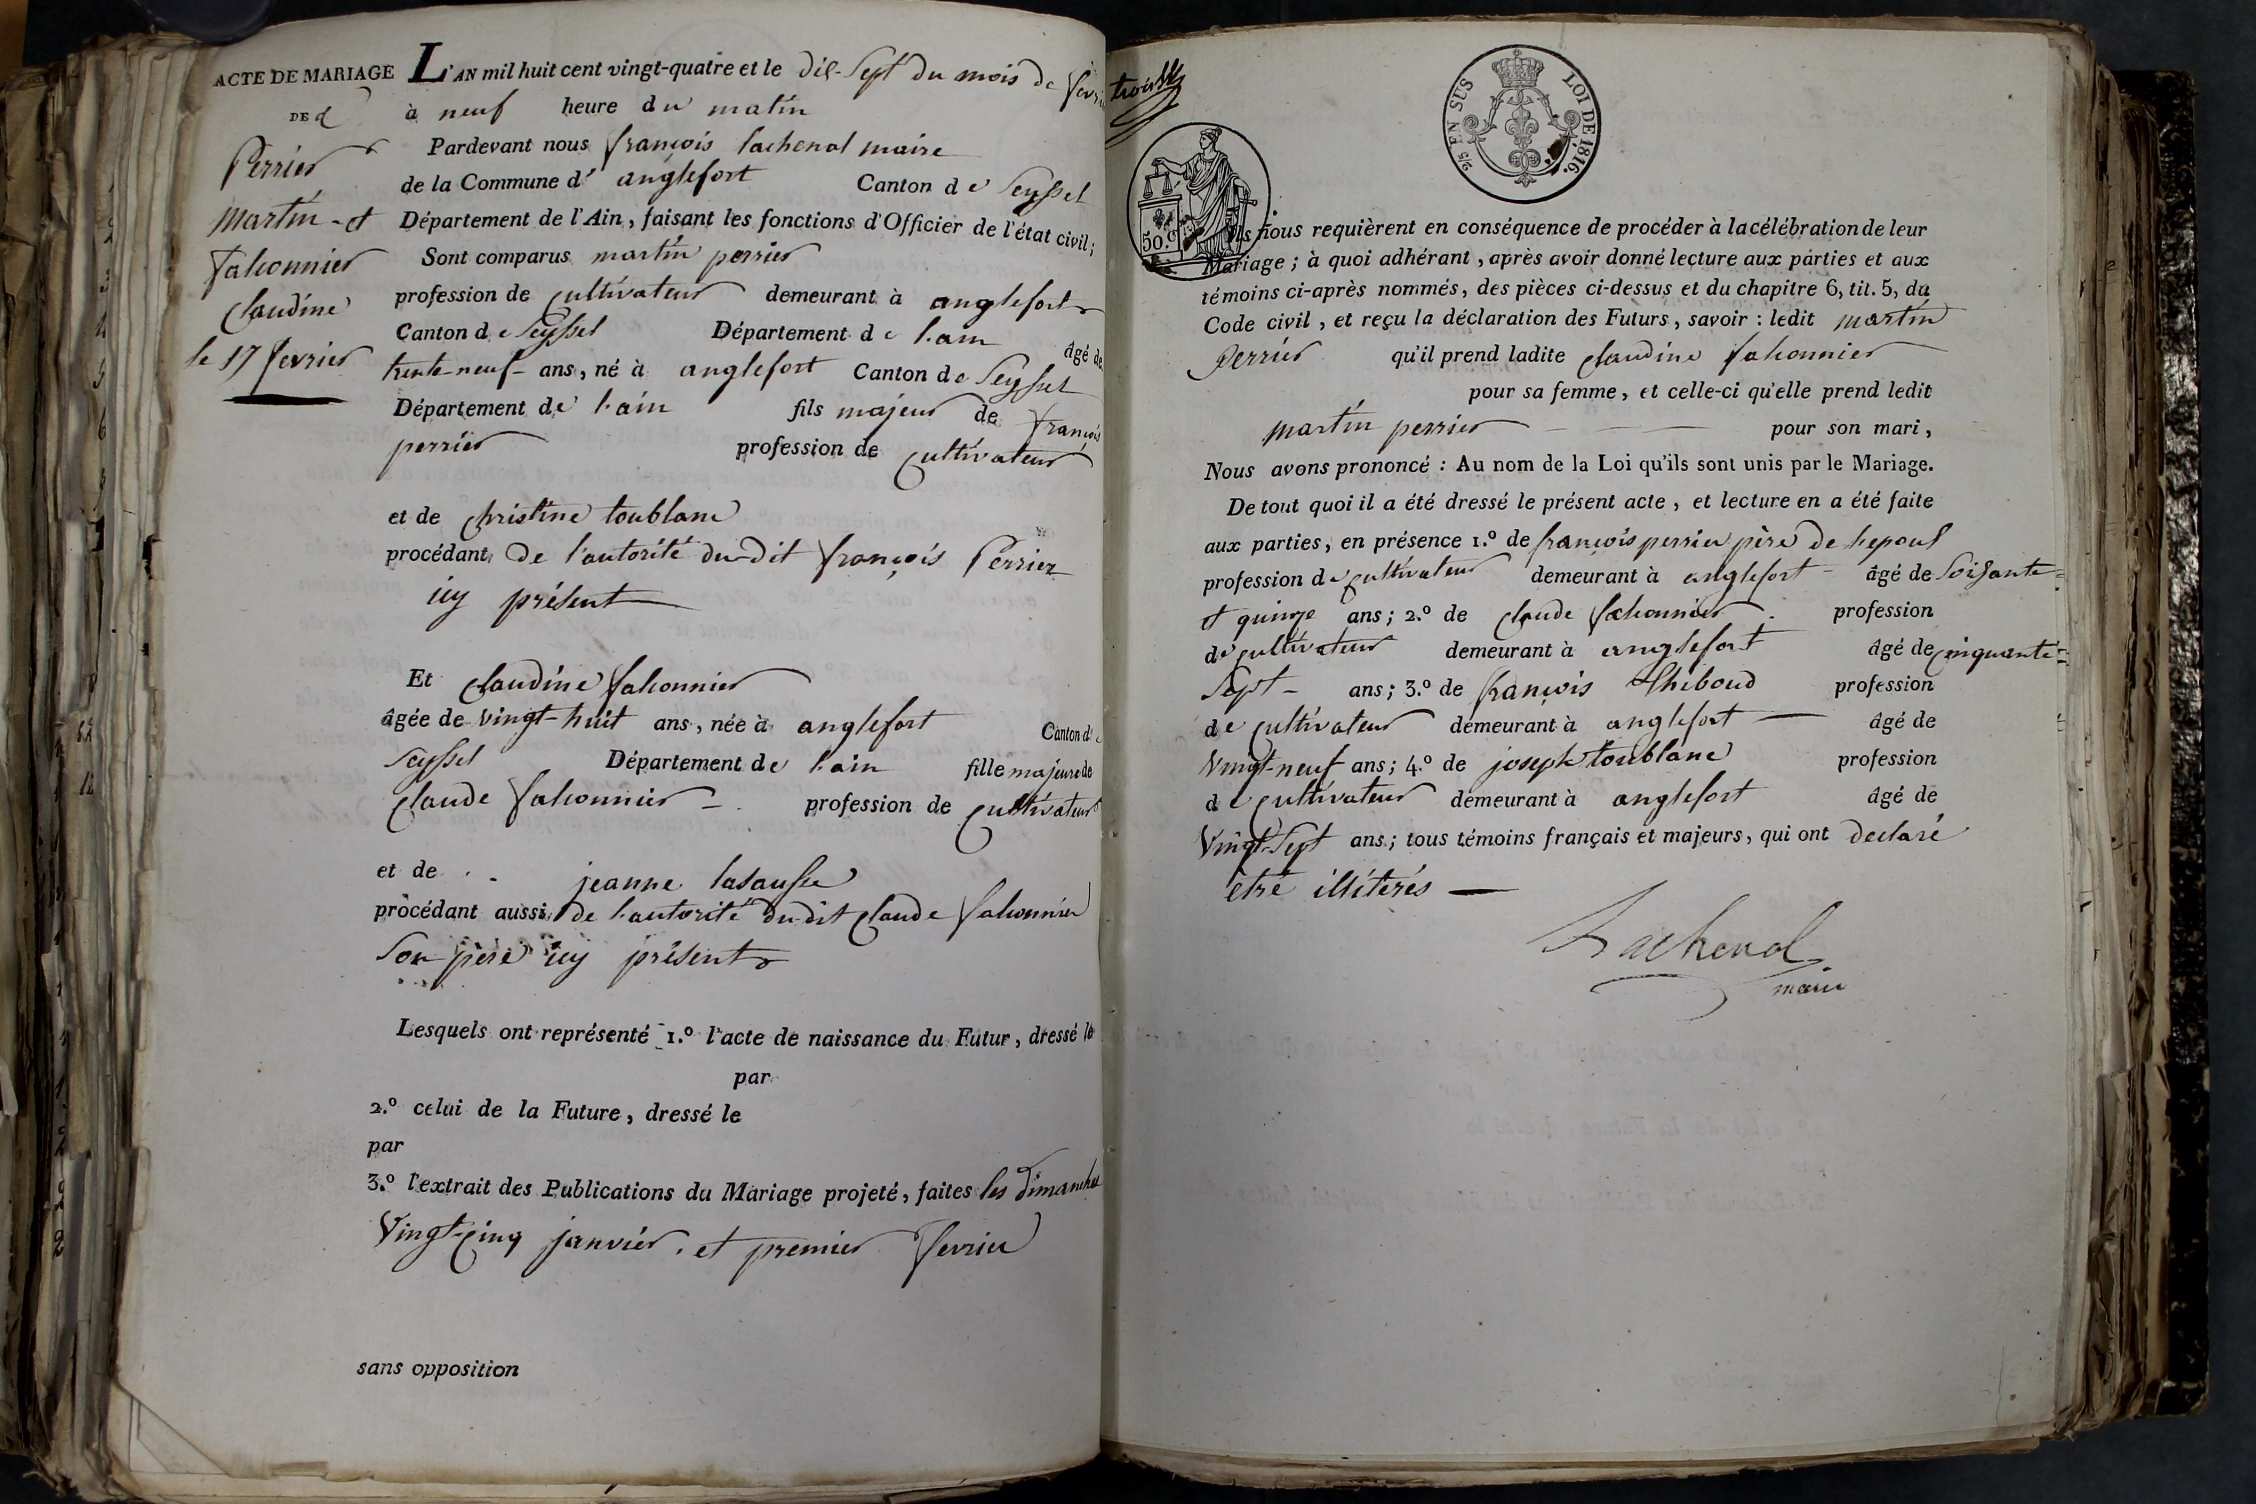 ACTE DE MARIAGE
DE d
Perrier
Martin - et
falconnier
Claudine
le 17 fevrier
L'AN mil huit cent vingt-quatre et le dix-sept du mois de fevrier
à neuf heure du matin
Pardevant nous françois lachenal maire
de la Commune d' anglefort Canton de Seyssel
Département de l'Ain, faisant les fonctions d'Officier de l'état civil;
Sont comparus martin perrier
profession de cultivateur demeurant à anglefort
Canton de Seyssel Département de l'ain âgé de
trente-neuf ans, né à anglefort Canton de Seyssel
Département de l'ain fils majeur de françois
perrier profession de cultivateur
et de christine toublanc
procédant de l'autorité du-dit françois Perrier
icy présent
Et claudine falconnier
âgée de vingt-huit ans, née à anglefort Canton d
Seyssel Département de l'ain fille majeure de
claude falconnier profession de cultivateur
et de jeanne lasausse
procédant aussi de l'autorité dudit claude falconnier
Son père icy présent
Lesquels ont représenté 1.º l'acte de naissance du Futur, dressé le
par
2.º celui de la Future, dressé le
par
3.º l'extrait des Publications du Mariage projeté, faites les dimanches
Vingt-cinq janvier, et premier fevrier
sans opposition
2/5 EN SUS LOI DE 1816.
50.c
Ils nous requièrent en conséquence de procéder à la célébration de leur
Mariage; à quoi adhérant, après avoir donné lecture aux parties et aux
témoins ci-après nommés, des pièces ci-dessus et du chapitre 6, tit. 5, du
Code civil, et reçu la déclaration des Futurs, savoir: ledit martin
Perrier qu'il prend ladite claudine falconnier
pour sa femme, et celle-ci qu'elle prend ledit
martin perrier pour son mari,
Nous avons prononcé: Au nom de la Loi qu'ils sont unis par le Mariage.
De tout quoi il a été dressé le présent acte, et lecture en a été faite
aux parties, en présence 1.º de françois perrier père de l'epoux
profession de cultivateur demeurant à anglefort âgé de soixante
et quinze ans; 2.º de claude falconnier profession
de cultivateur demeurant à anglefort âgé de cinquante
Sept ans; 3.º de françois thiboud profession
de cultivateur demeurant à anglefort âgé de
Vingt-neuf ans; 4.º de joseph toublanc profession
de cultivateur demeurant à anglefort âgé de
Vingt-Sept ans; tous témoins français et majeurs, qui ont declaré
être illiterés
Lachenal
maire